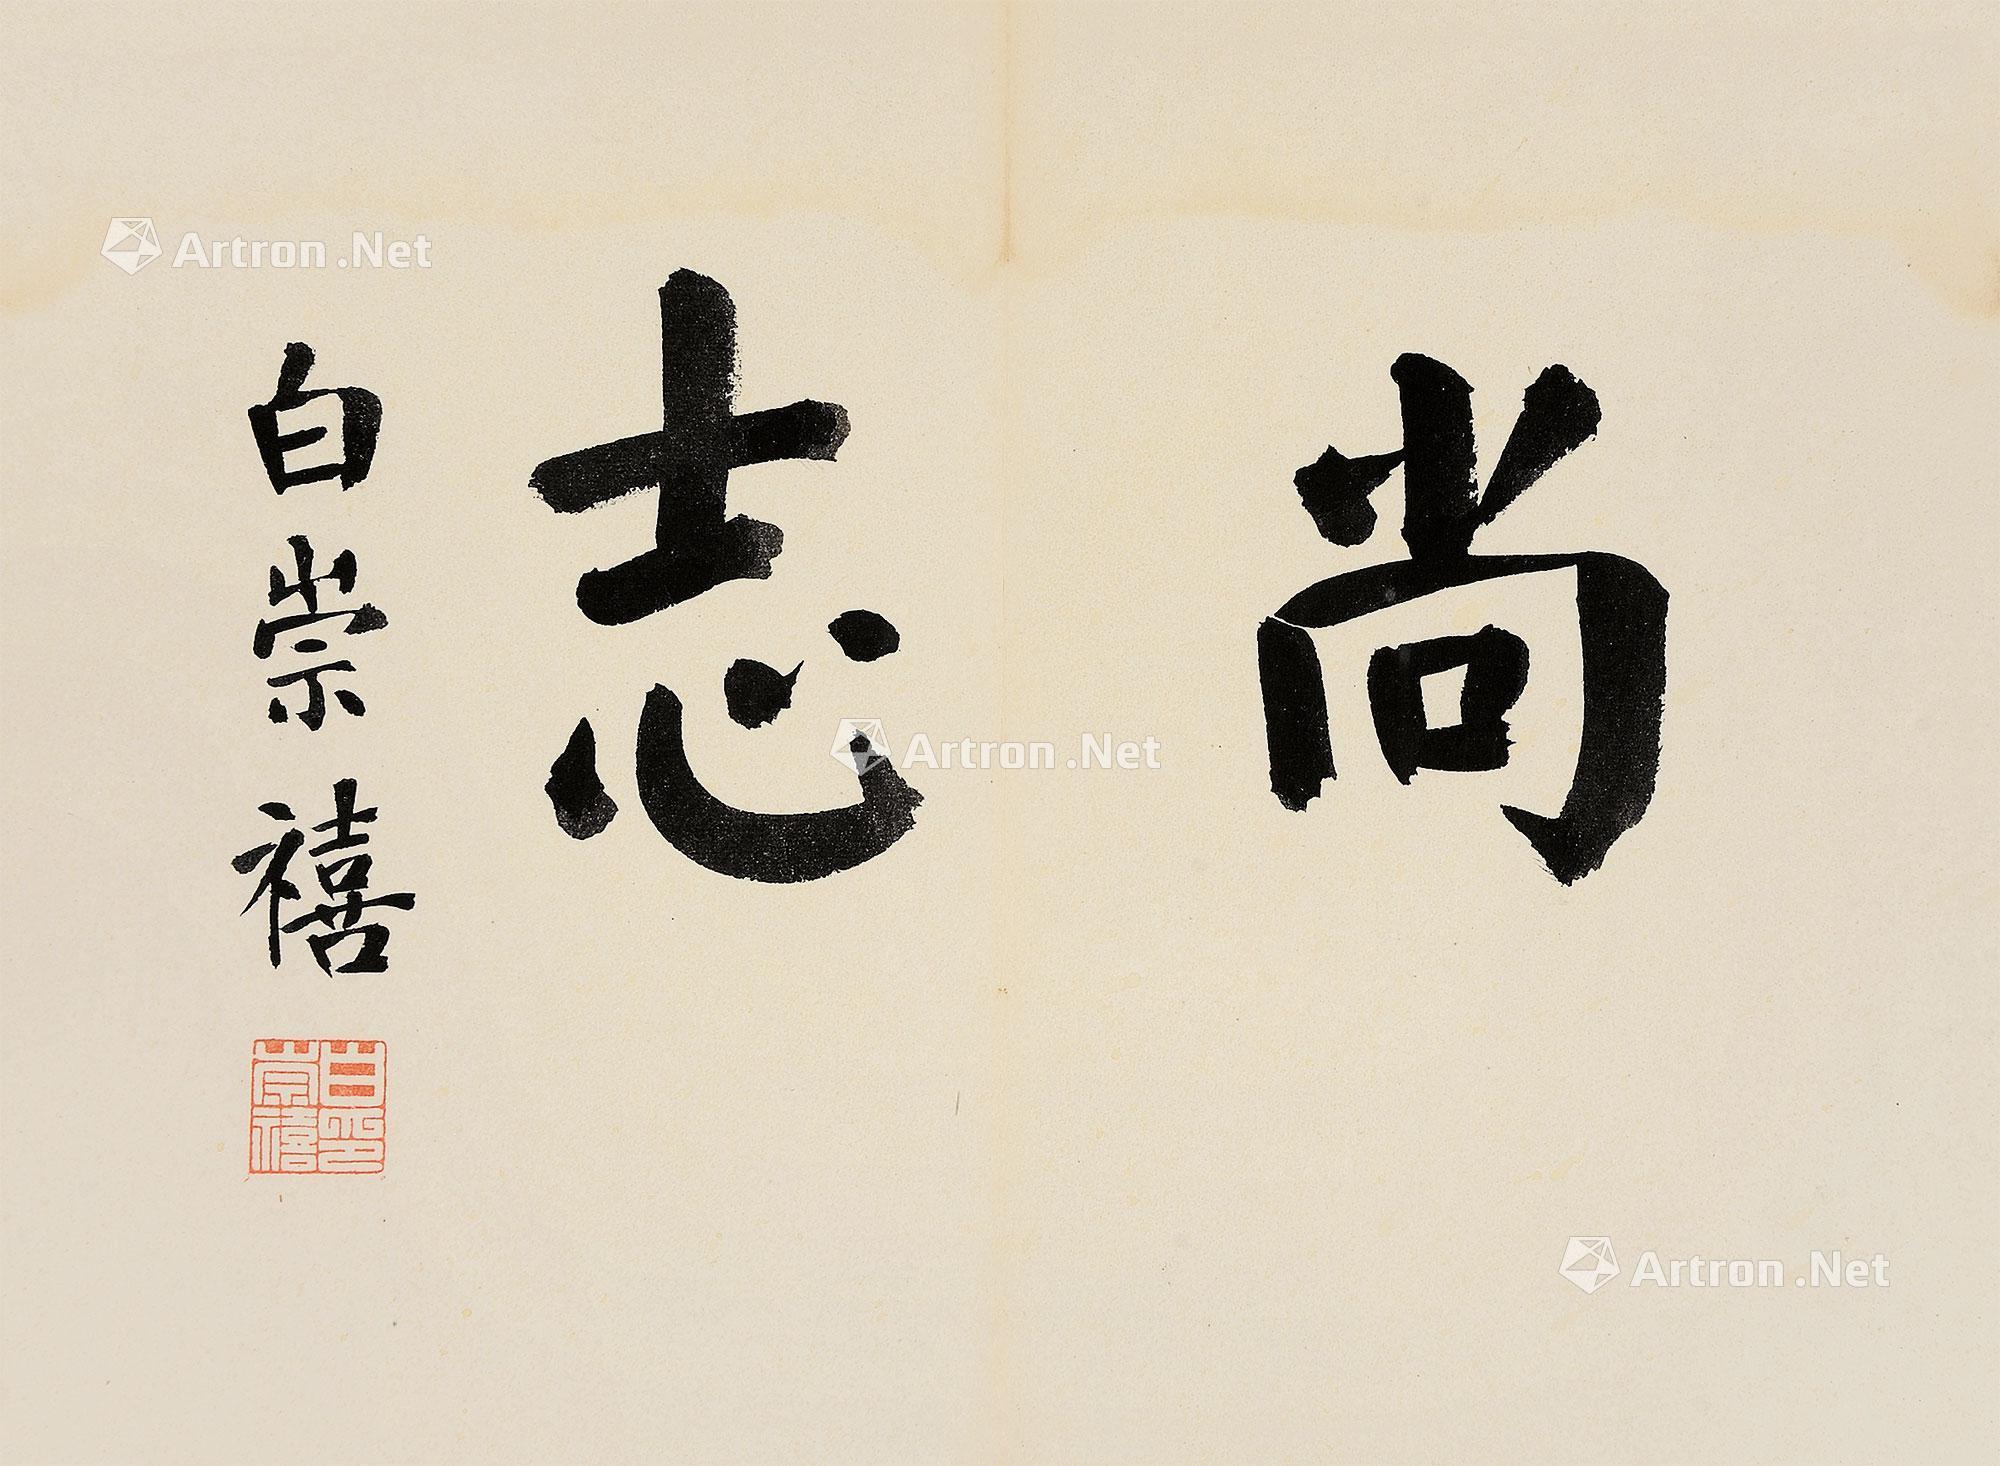 尚志
白崇禧
白崇禧印
Artron.Net
Artron.Net
Artron.Net